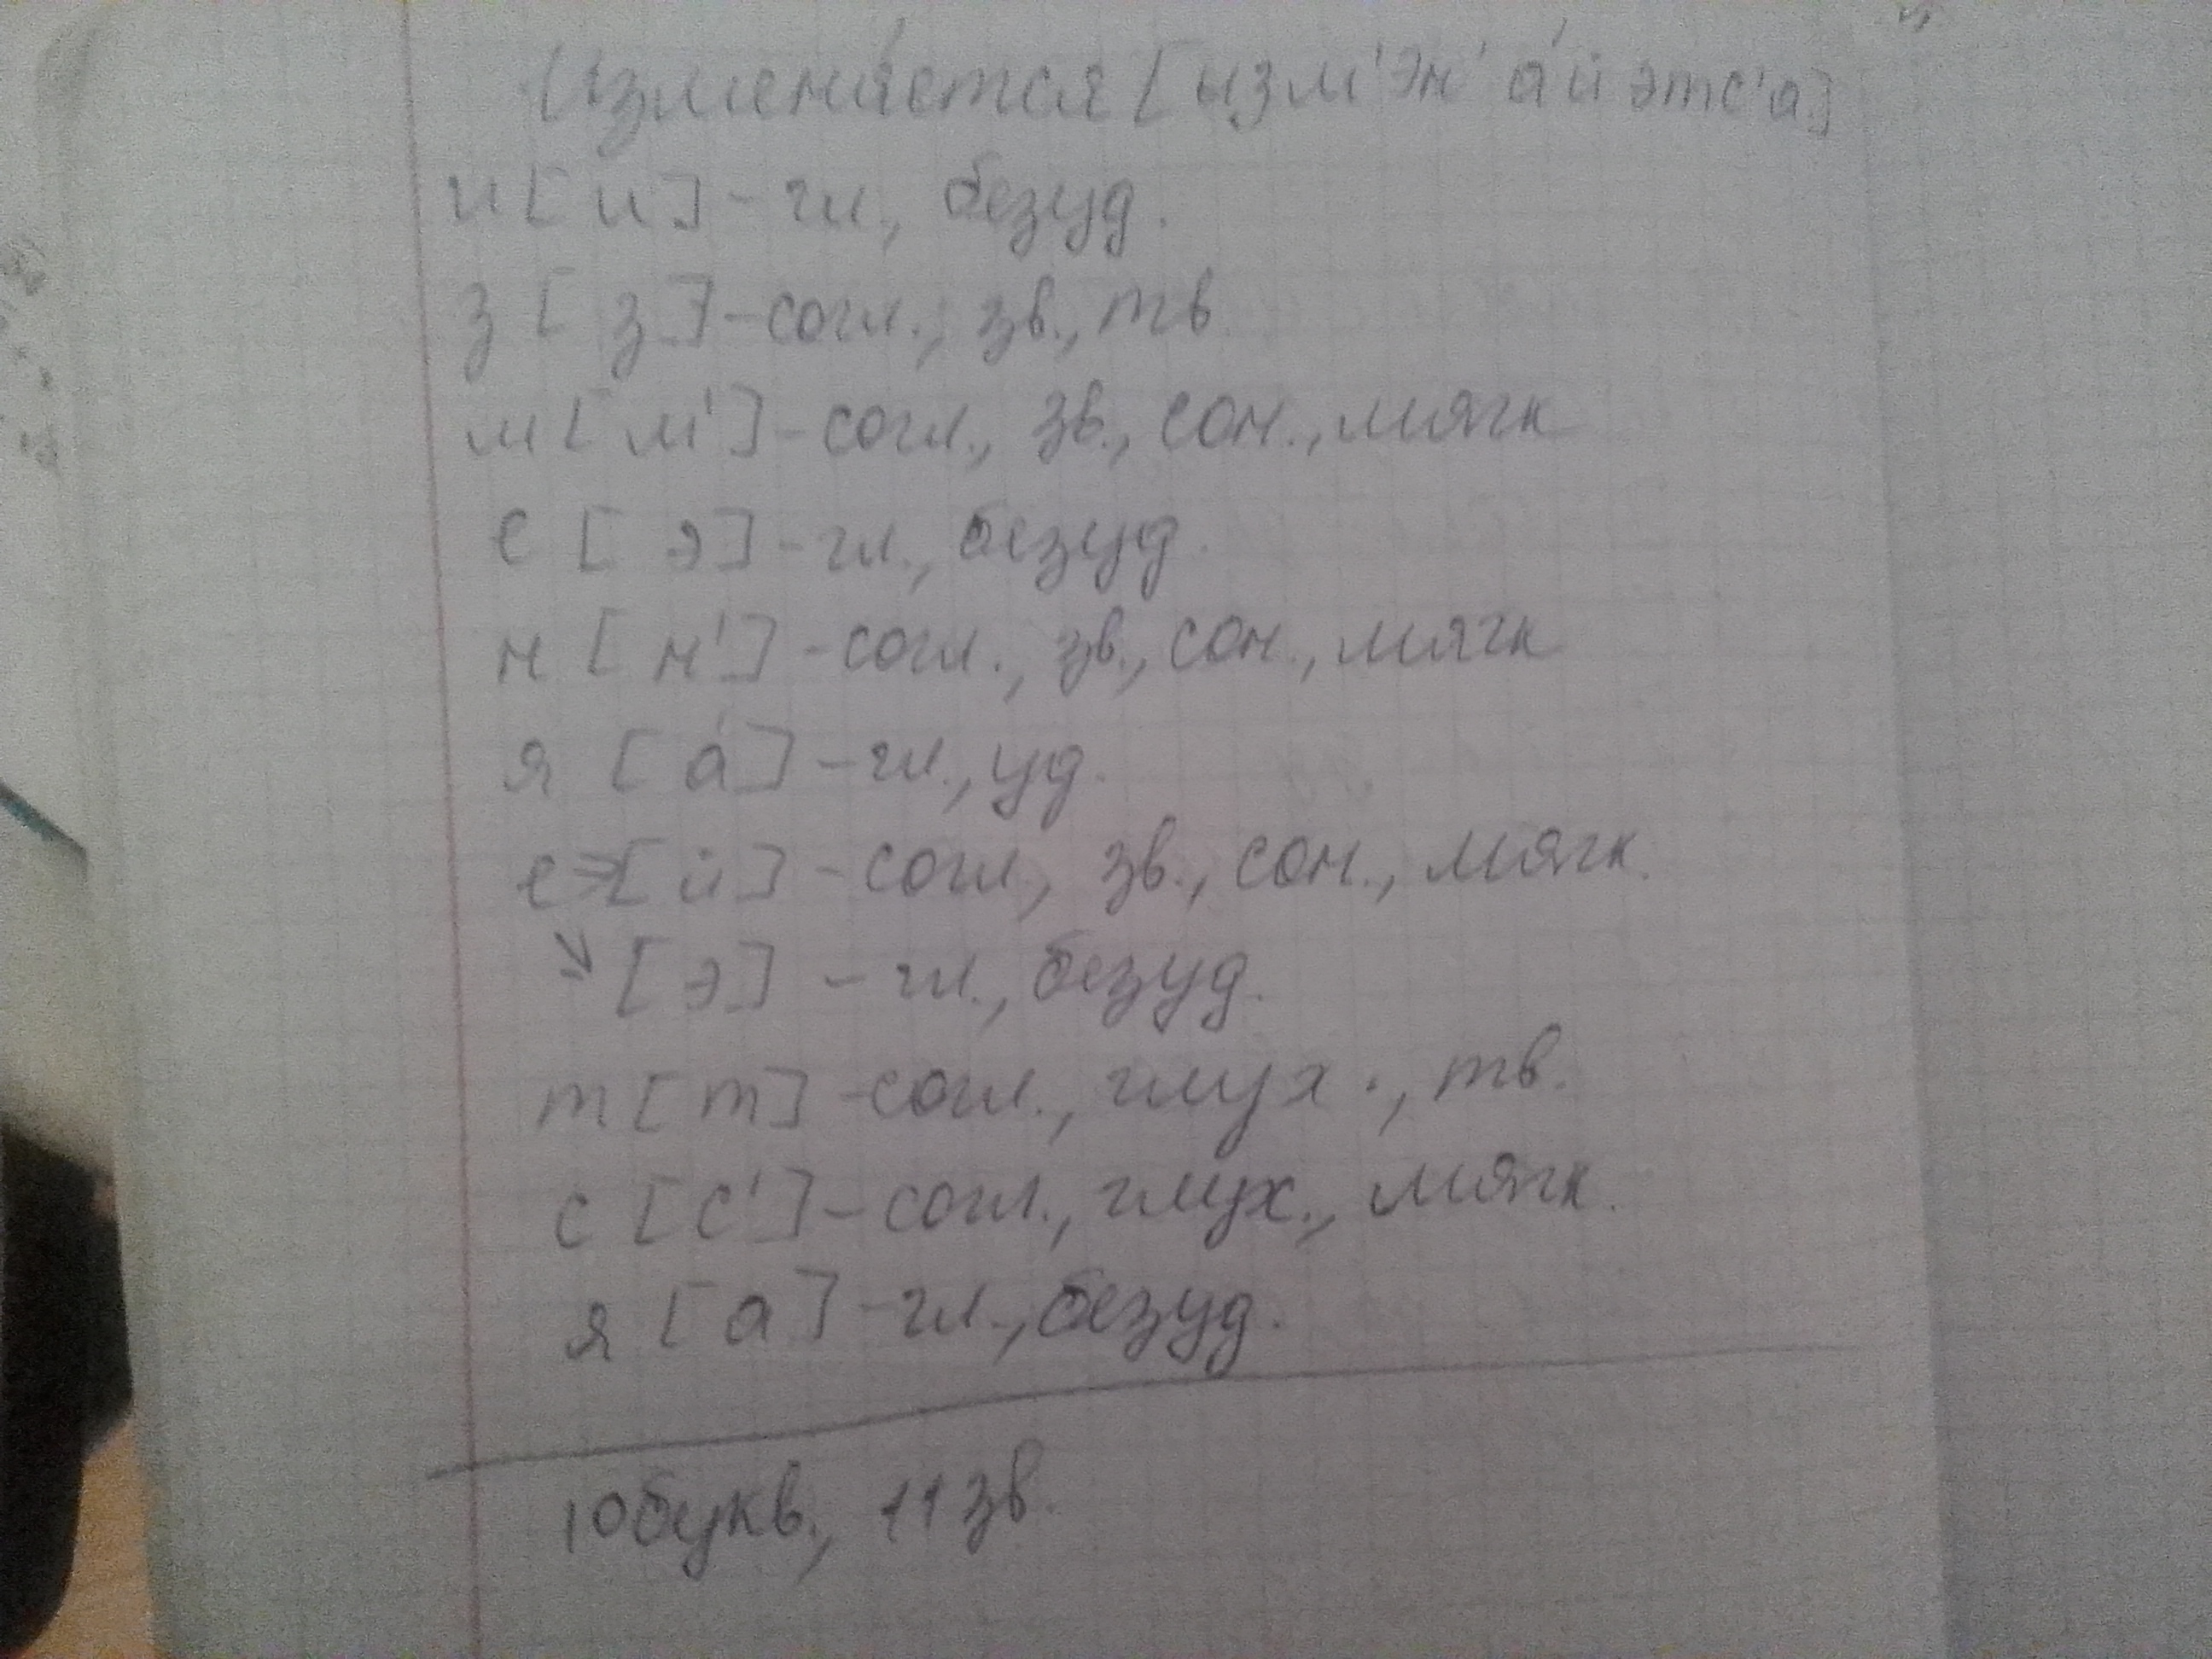 Изменя́ется [изм'эн'а́йэтс'а]
и [и] - гл., безуд.
з [з] - согл., зв., тв
м [м'] - согл., зв., сон., мягк
е [э] - гл., безуд.
н [н'] - согл., зв., сон., мягк
я [а́] - гл., уд.
е → [й] - согл., зв., сон., мягк.
↘ [э] - гл., безуд.
т [т] - согл., глух., тв.
с [с'] - согл., глух., мягк.
я [а] - гл., безуд.
10 букв., 11 зв.